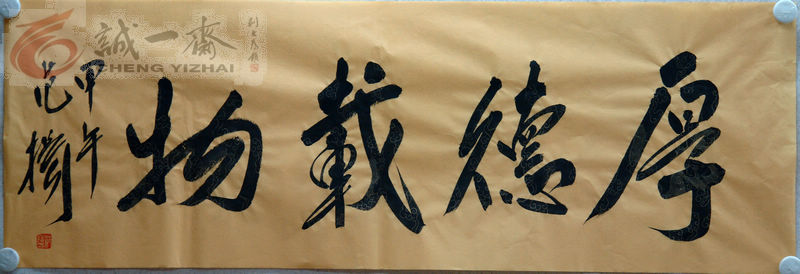 厚德載物
甲午
范樸
誠一齋
CHENG YIZHAI